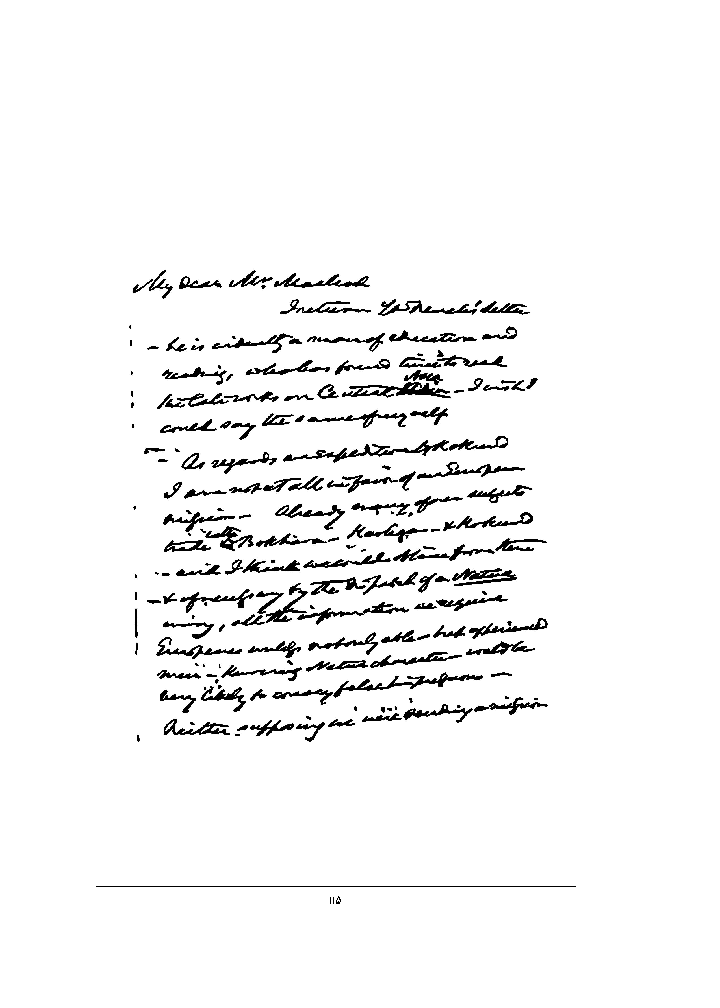 My dear Mr. Macleod
I return Ld. letter
– he is evidently a man of education and
reading, who has found time to read
the late works on Central Asia – I wish I
could say the same of myself
– As regards an expedition to Kokund
I am not at all in favor of an European
mission – Already many of our subjects
trade with Bokhara – Kashgar – & Kokund
– and I think we could obtain from them
– & if necessary by the dispatch of a Native
envoy, all the information we require
Europeans unless not only able – but experienced
men – knowing Native character – would be
very likely to convey false impressions –
Neither supposing we were sending a mission
۱۱۵